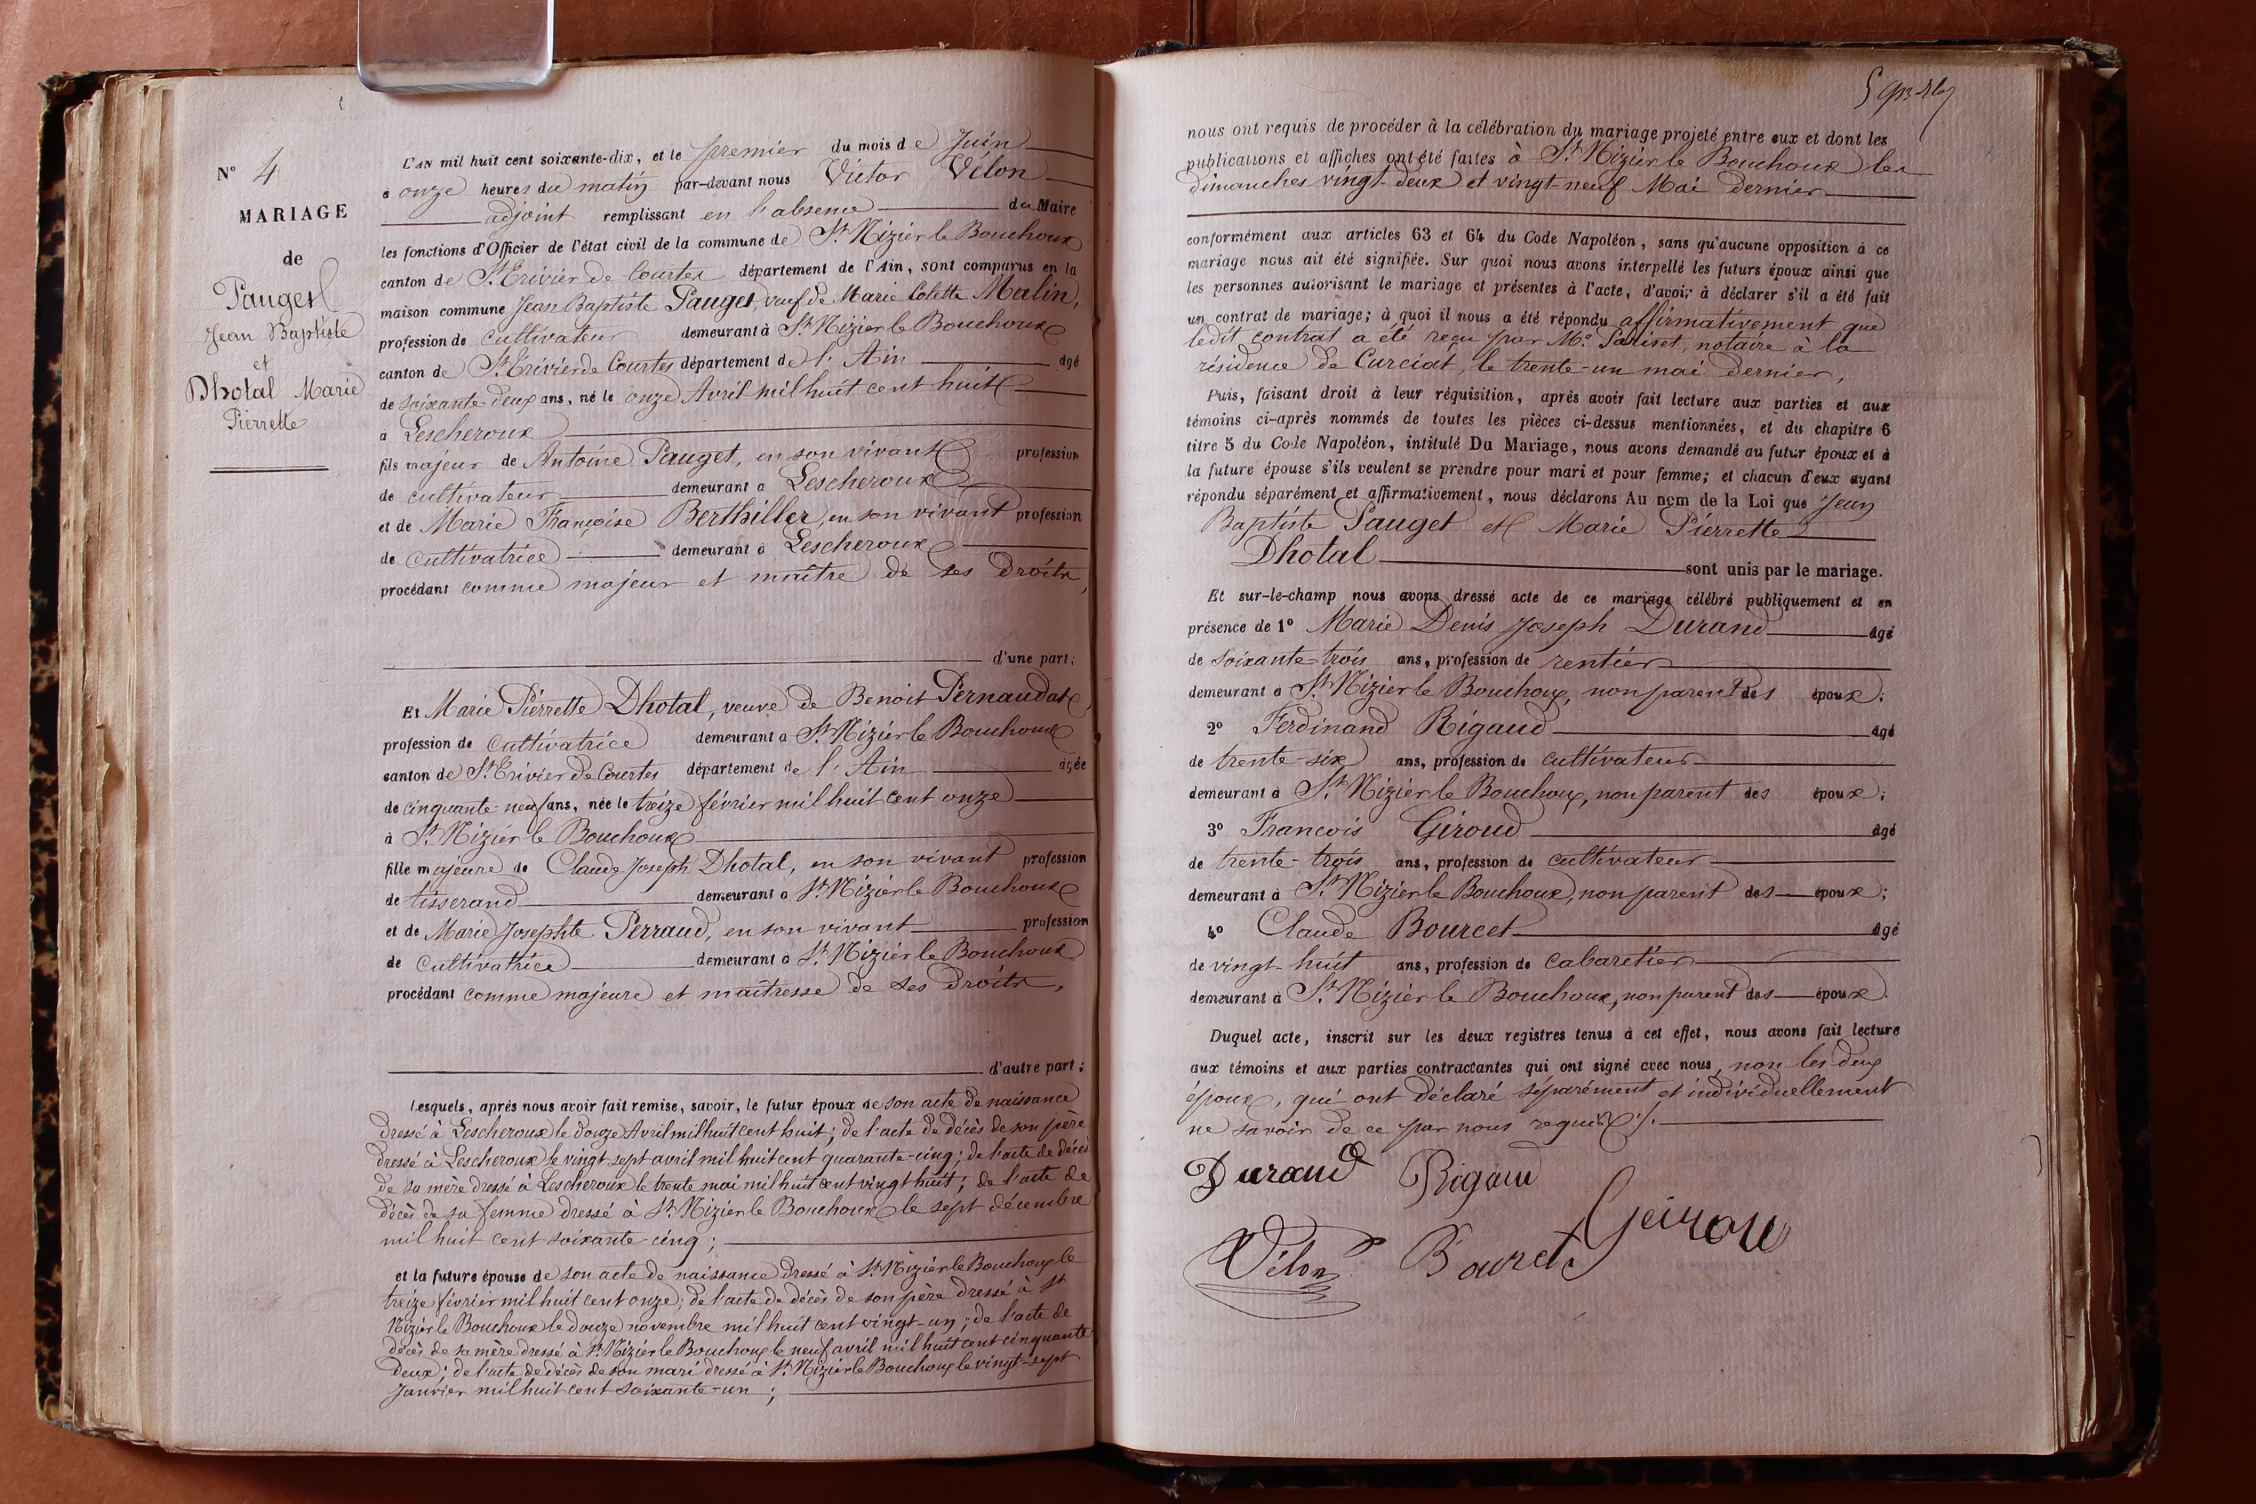 N° 4
MARIAGE
de
Pauget
Jean Baptiste
et
Dhotal Marie
Pierrette
L'AN mil huit cent soixante-dix, et le premier du mois de Juin
à onze heures du matin par-devant nous Victor Vélon
adjoint remplissant en l'absence du Maire
les fonctions d'Officier de l'état civil de la commune de St Nizier le Bouchoux
canton de St Trivier de Courtes département de l'Ain, sont comparus en la
maison commune Jean Baptiste Pauget, veuf de Marie Colette Malin,
profession de cultivateur demeurant à St Nizier le Bouchoux
canton de St Trivier de Courtes département de l'Ain âgé
de soixante-deux ans, né le onze Avril mil huit cent huit
à Lescheroux
fils majeur de Antoine Pauget, en son vivant profession
de cultivateur demeurant à Lescheroux
et de Marie Françoise Berthiller, en son vivant profession
de cultivatrice demeurant à Lescheroux
procédant comme majeur et maître de ses droits,
d'une part;
Et Marie Pierrette Dhotal, veuve de Benoit Pernaudat,
profession de cultivatrice demeurant à St Nizier le Bouchoux
canton de St Trivier de Courtes département de l'Ain âgée
de cinquante-neuf ans, née le treize février mil huit cent onze
à St Nizier le Bouchoux
fille majeure de Claude Joseph Dhotal, en son vivant profession
de tisserand demeurant à St Nizier le Bouchoux
et de Marie Josephte Perraud, en son vivant profession
de cultivatrice demeurant à St Nizier le Bouchoux
procédant comme majeure et maîtresse de ses droits,
d'autre part;
Lesquels, après nous avoir fait remise, savoir, le futur époux de son acte de naissance
dressé à Lescheroux le douze Avril mil huit cent huit; de l'acte de décès de son père
dressé à Lescheroux le vingt sept avril mil huit cent quarante-cinq; de l'acte de décès
de sa mère dressé à Lescheroux le trente mai mil huit cent vingt huit; de l'acte de
décès de sa femme dressé à St Nizier le Bouchoux le sept décembre
mil huit cent soixante-cinq;
et la future épouse de son acte de naissance dressé à St Nizier le Bouchoux le
treize février mil huit cent onze; de l'acte de décès de son père dressé à St
Nizier le Bouchoux le douze novembre mil huit cent vingt-un; de l'acte de
décès de sa mère dressé à St Nizier le Bouchoux le neuf avril mil huit cent cinquante
deux; de l'acte de décès de son mari dressé à St Nizier le Bouchoux le vingt-sept
Janvier mil huit cent soixante-un;
nous ont requis de procéder à la célébration du mariage projeté entre eux et dont les
publications et affiches ont été faites à St Nizier le Bouchoux les
dimanches vingt-deux et vingt-neuf Mai dernier
conformément aux articles 63 et 64 du Code Napoléon, sans qu'aucune opposition à ce
mariage nous ait été signifiée. Sur quoi nous avons interpellé les futurs époux ainsi que
les personnes autorisant le mariage et présentes à l'acte, d'avoir à déclarer s'il a été fait
un contrat de mariage; à quoi il nous a été répondu affirmativement que
ledit contrat a été reçu par Me notaire à la
résidence de Curciat, le trente-un mai dernier,
Puis, faisant droit à leur réquisition, après avoir fait lecture aux parties et aux
témoins ci-après nommés de toutes les pièces ci-dessus mentionnées, et du chapitre 6
titre 5 du Code Napoléon, intitulé Du Mariage, nous avons demandé au futur époux et à
la future épouse s'ils veulent se prendre pour mari et pour femme; et chacun d'eux ayant
répondu séparément et affirmativement, nous déclarons Au nom de la Loi que Jean
Baptiste Pauget et Marie Pierrette
Dhotal sont unis par le mariage.
Et sur-le-champ nous avons dressé acte de ce mariage célébré publiquement et en
présence de 1° Marie Denis Joseph Durand âgé
de soixante-trois ans, profession de rentier
demeurant à St Nizier le Bouchoux, non parent des époux;
2° Ferdinand Rigaud âgé
de trente-six ans, profession de cultivateur
demeurant à St Nizier le Bouchoux, non parent des époux;
3° Francois Giroud âgé
de trente-trois ans, profession de cultivateur
demeurant à St Nizier le Bouchoux, non parent des époux;
4° Claude Bourcet âgé
de vingt-huit ans, profession de cabaretier
demeurant à St Nizier le Bouchoux, non parent des époux.
Duquel acte, inscrit sur les deux registres tenus à cet effet, nous avons fait lecture
aux témoins et aux parties contractantes qui ont signé avec nous, non les deux
époux, qui ont déclaré séparément et individuellement
ne savoir de ce par nous requis ./.
Durand Rigaud
Geirou
Vélon Bourcet